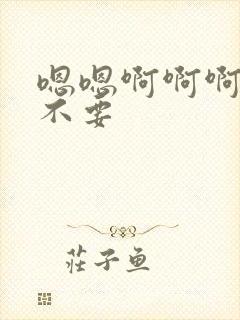 嗯嗯啊啊啊
不要
莊子魚